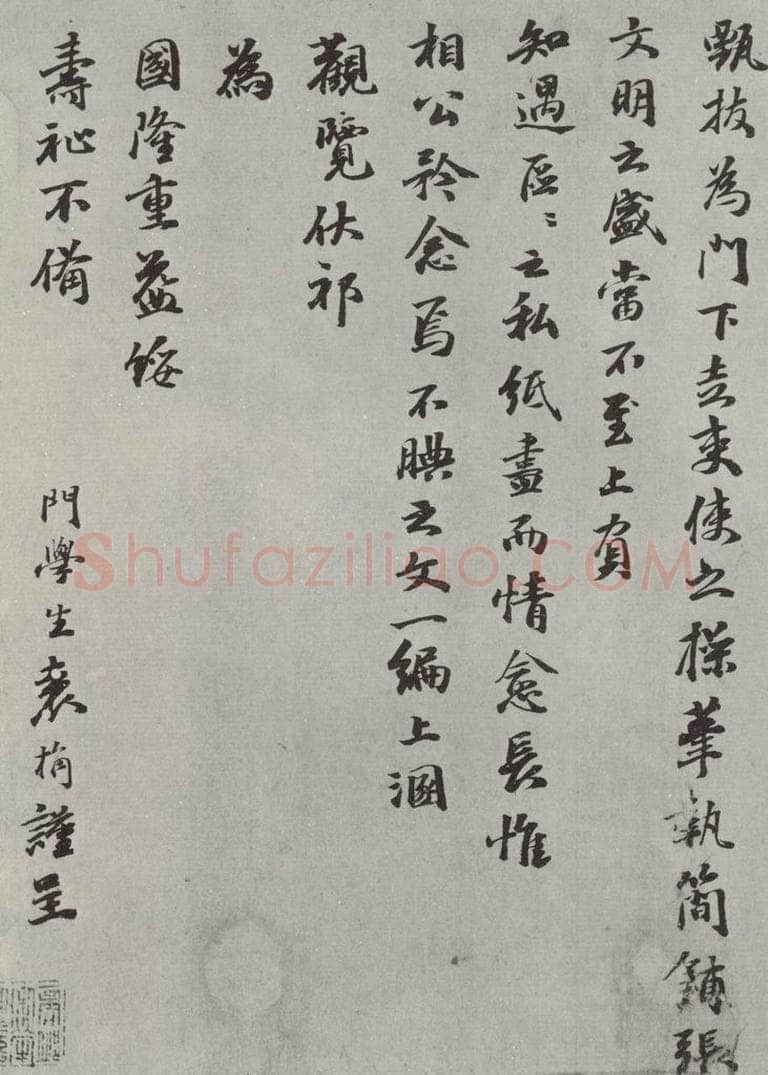 甄拔為門下走吏使之操筆執簡鋪張
文明之盛當不至上負
知遇區〻之私紙盡而情愈長惟
相公矜念焉不腆之文一編上溷
觀覽伏祁
為
國隆重茲綏
壽祉不備
門學生袁桷謹呈
Shufaziliao.COM